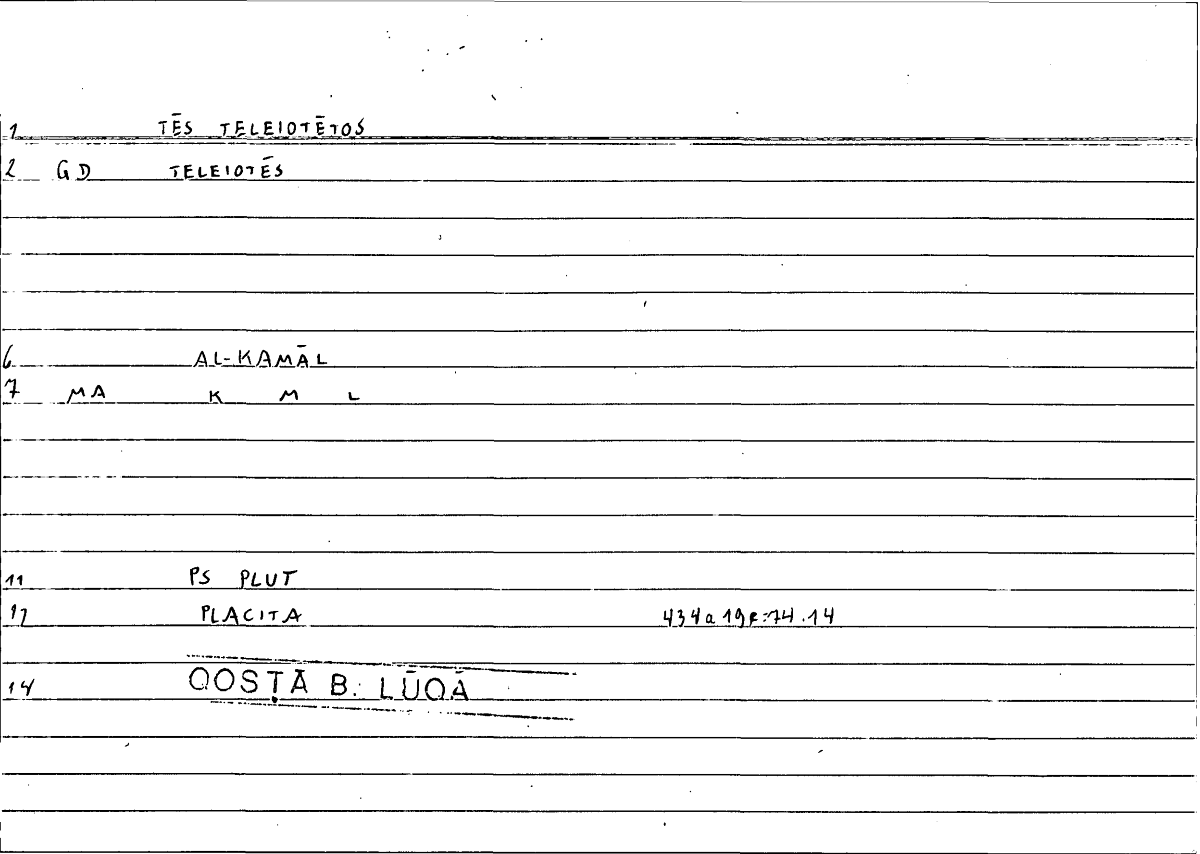 1 TĒS TELEIOTĒTOS
2 GD TELEIOTĒS
6 AL-KAMĀL
7 MA K M L
11 PS PLUT
12 PLACITA 434a19f:74.14
14 QOSṬĀ B. LŪQĀ